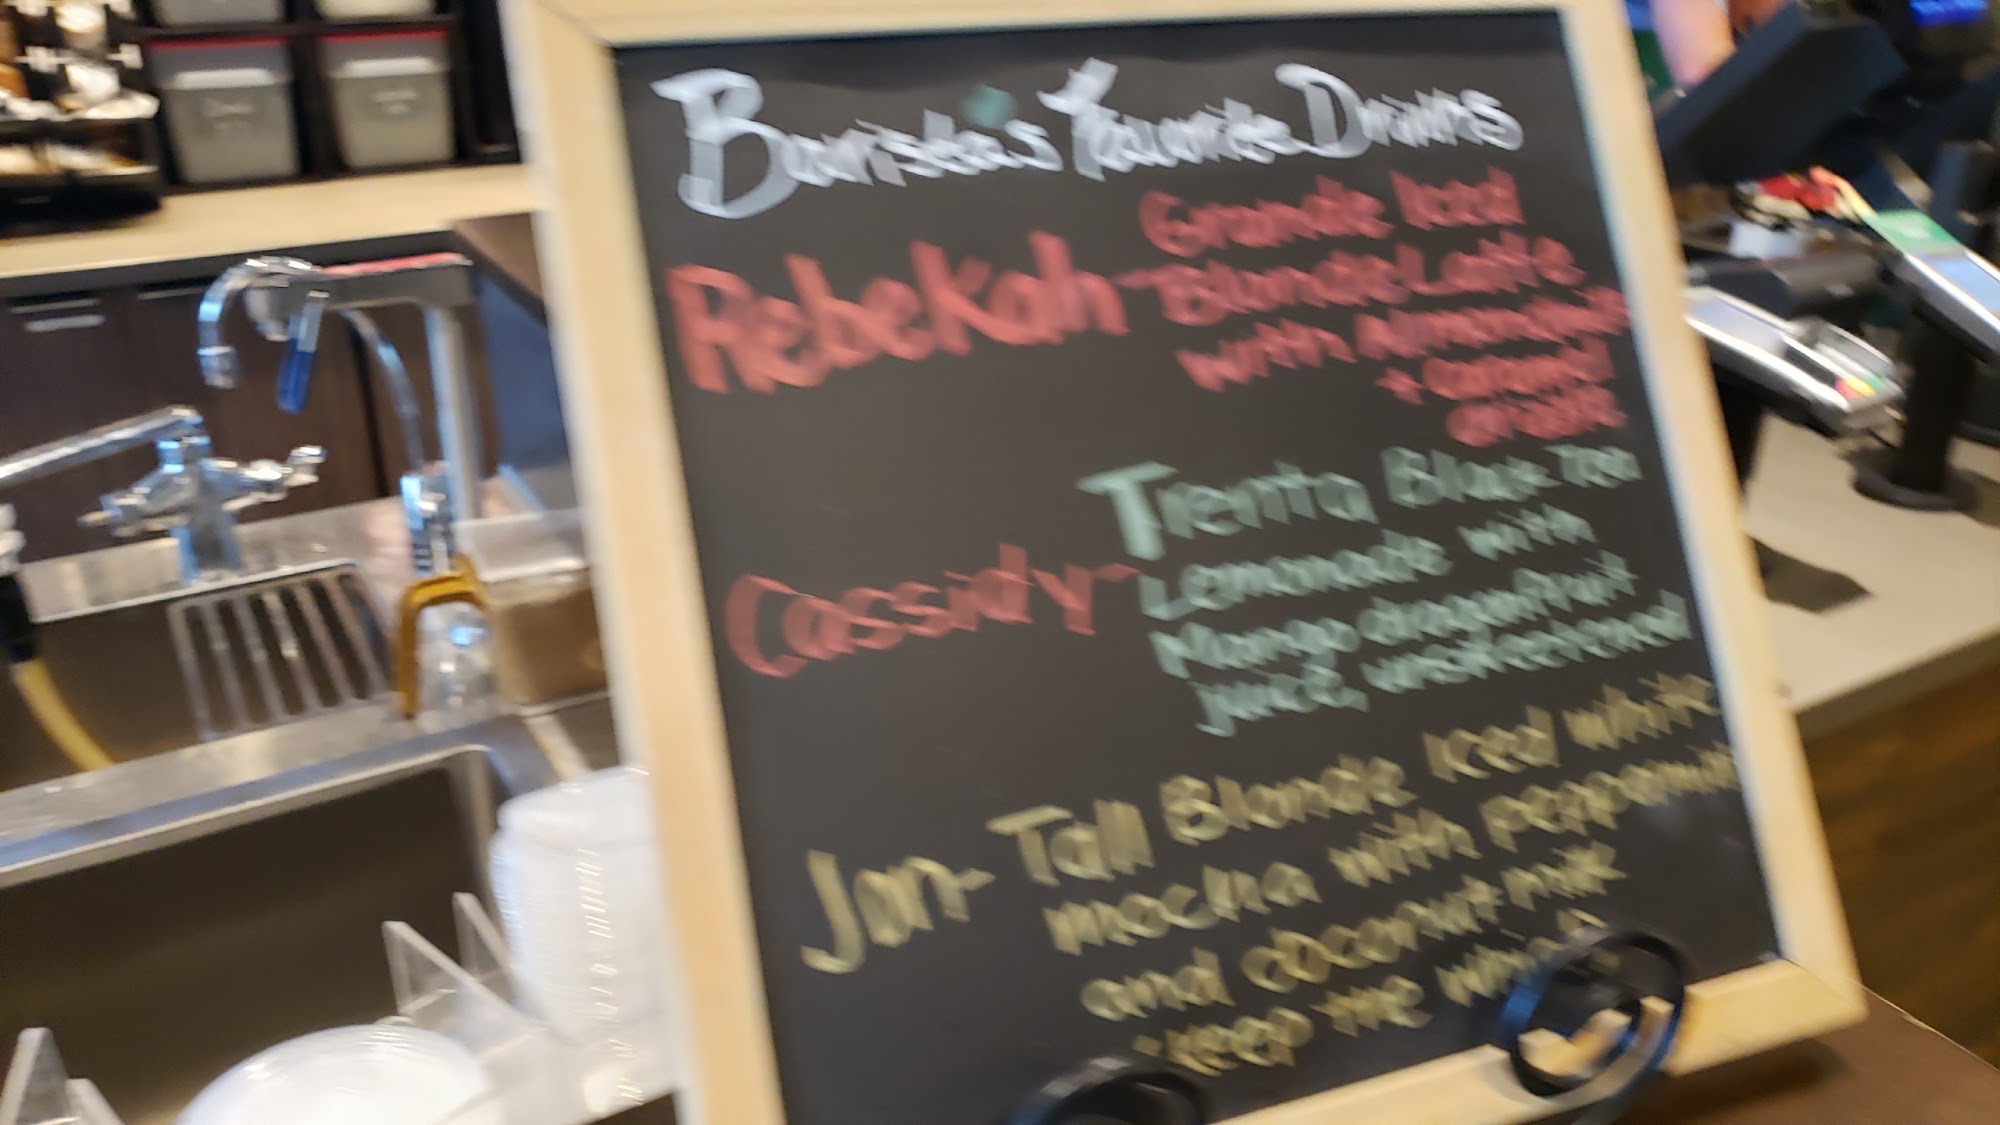 Barista's Favorite Drinks
Rebekah - Grande Iced
Blonde Latte
with Almondmilk
+ caramel
drizzle
Cassidy - Trenta Black Tea
Lemonade with
Mango dragonfruit
juice, unsweetened
Jan - Tall Blonde Iced white
mocha with peppermint
and coconutmilk
- keep the whip!